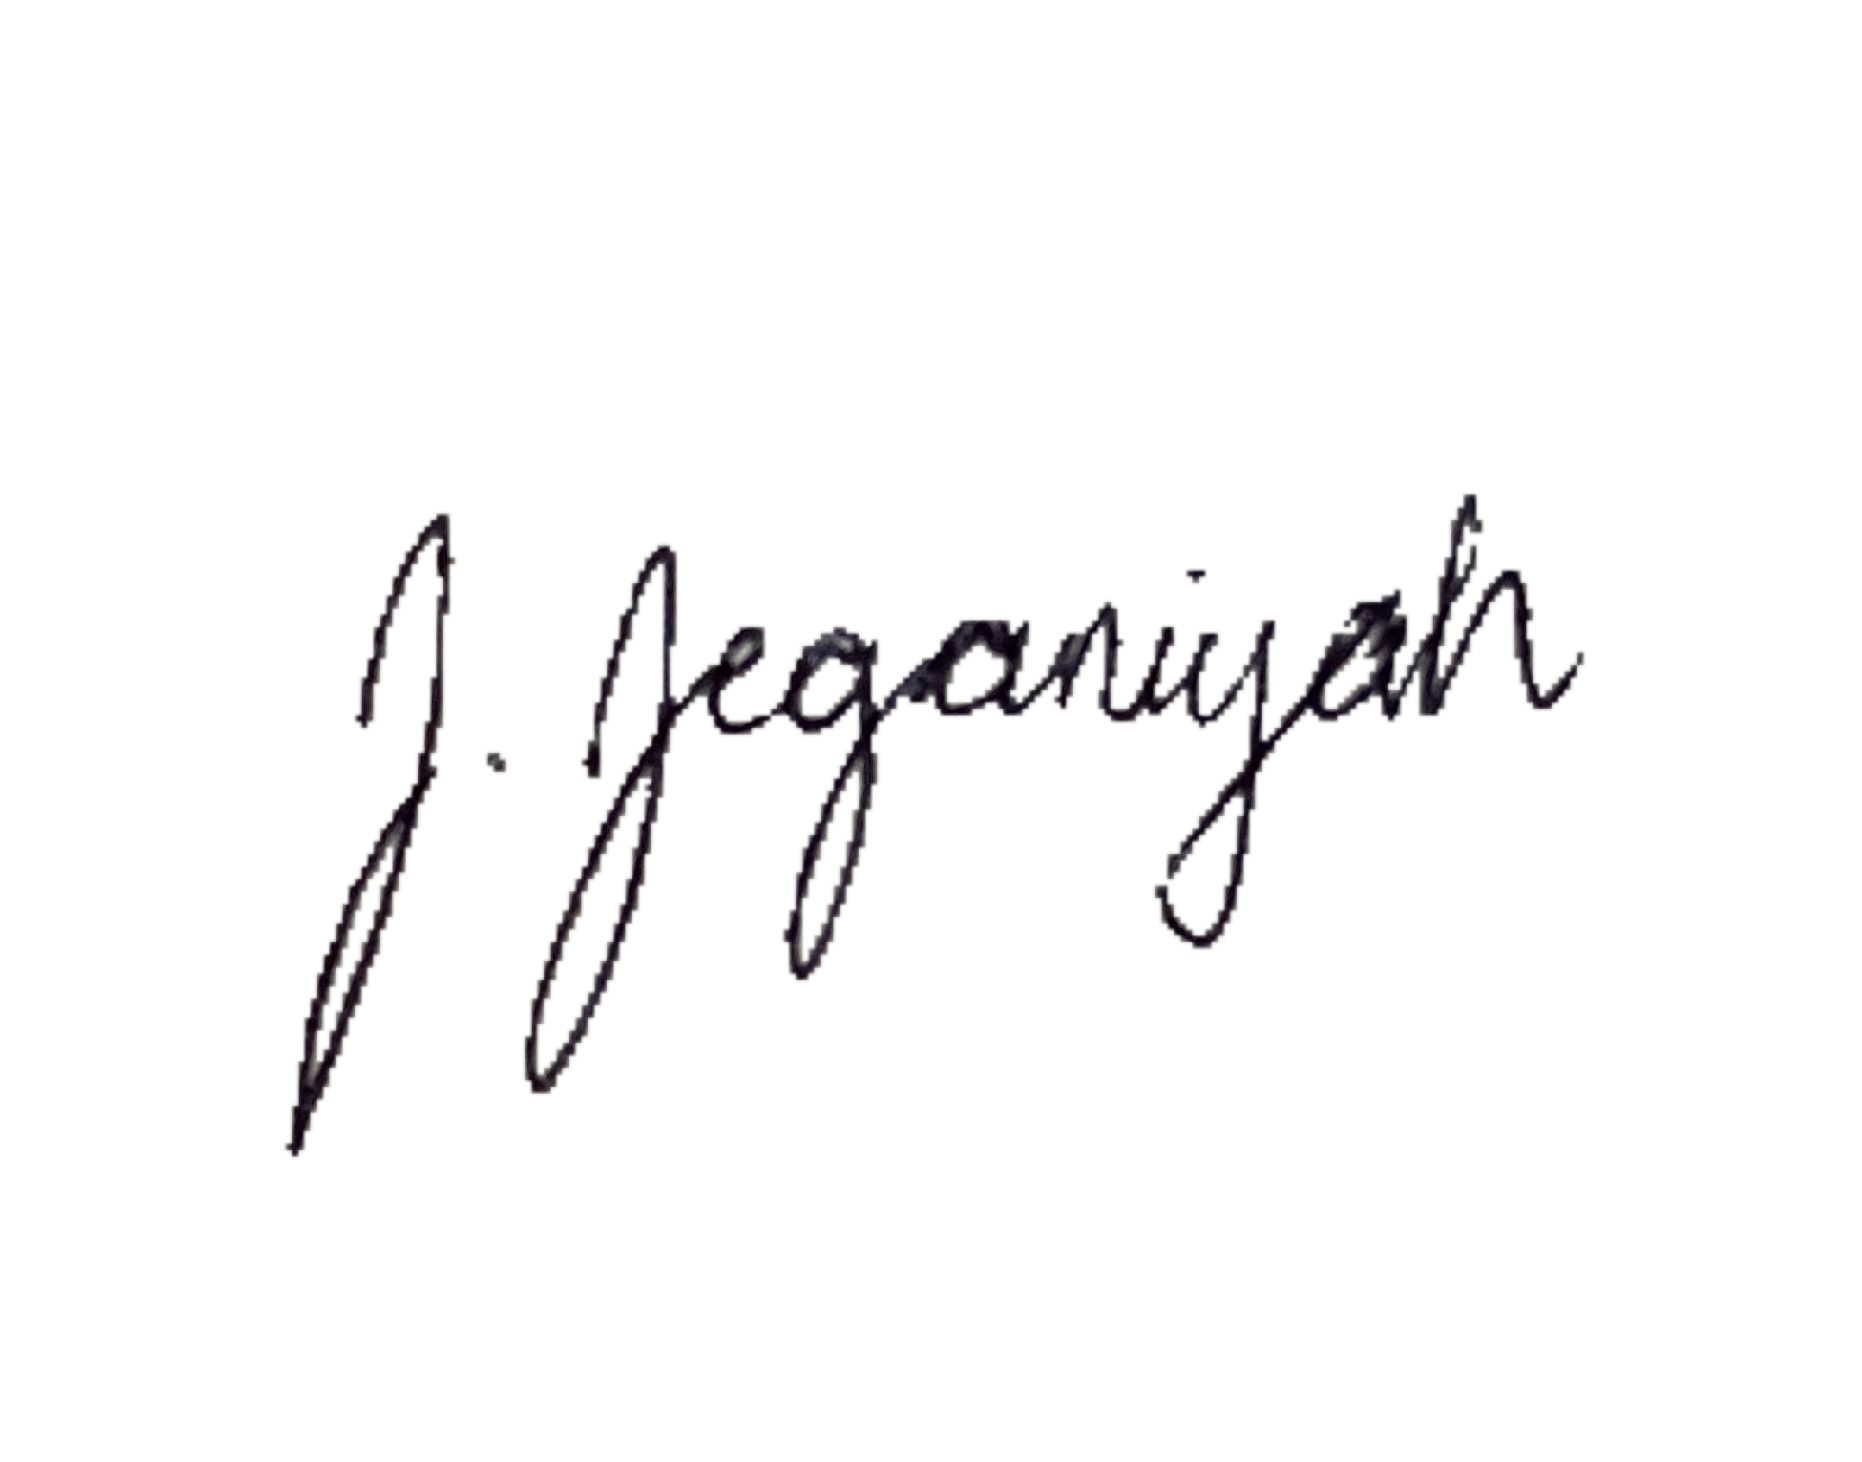 J. Jeganiyah